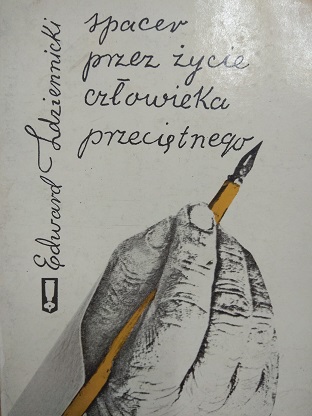 spacer
przez życie
człowieka
przeciętnego
Edward Ździennicki